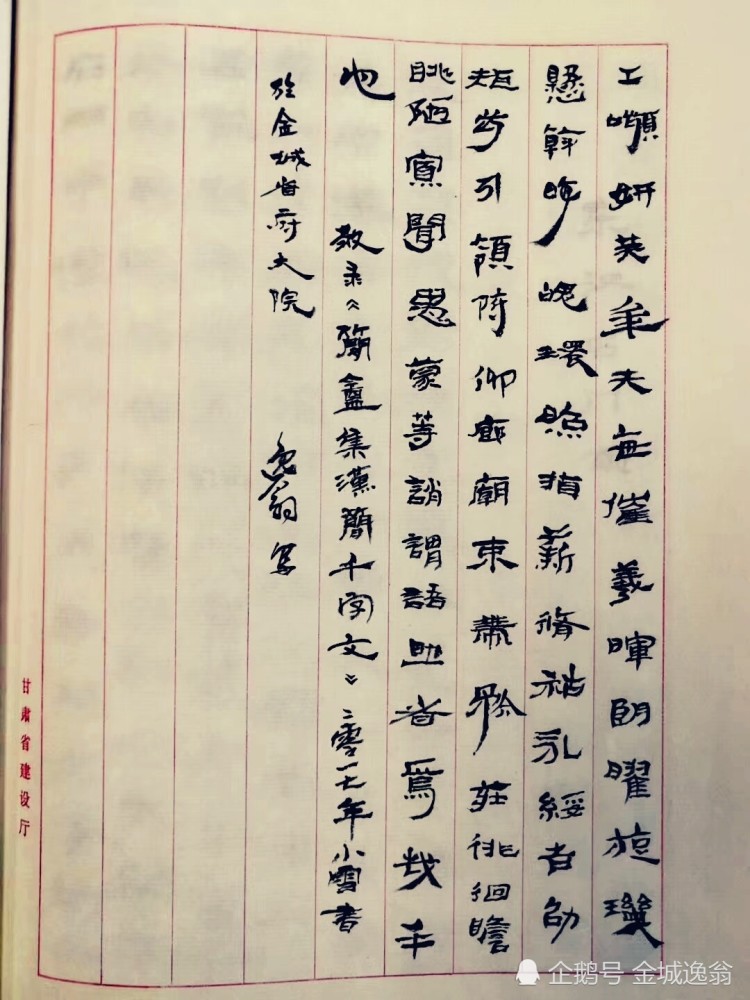 工嚬妍笑年矢每催羲暉朗曜旋璣
懸斡晦魄環照指薪脩祜永綏吉劭
矩步引領俯仰廊廟束帶矜莊徘徊瞻
眺陋寡聞愚蒙等誚謂語助者焉哉乎
也 敬录《簡盦集漢簡千字文》二零一七年小雪書
於金城省府大院 逸翁写
甘肃省建设厅
企鹅号 金城逸翁